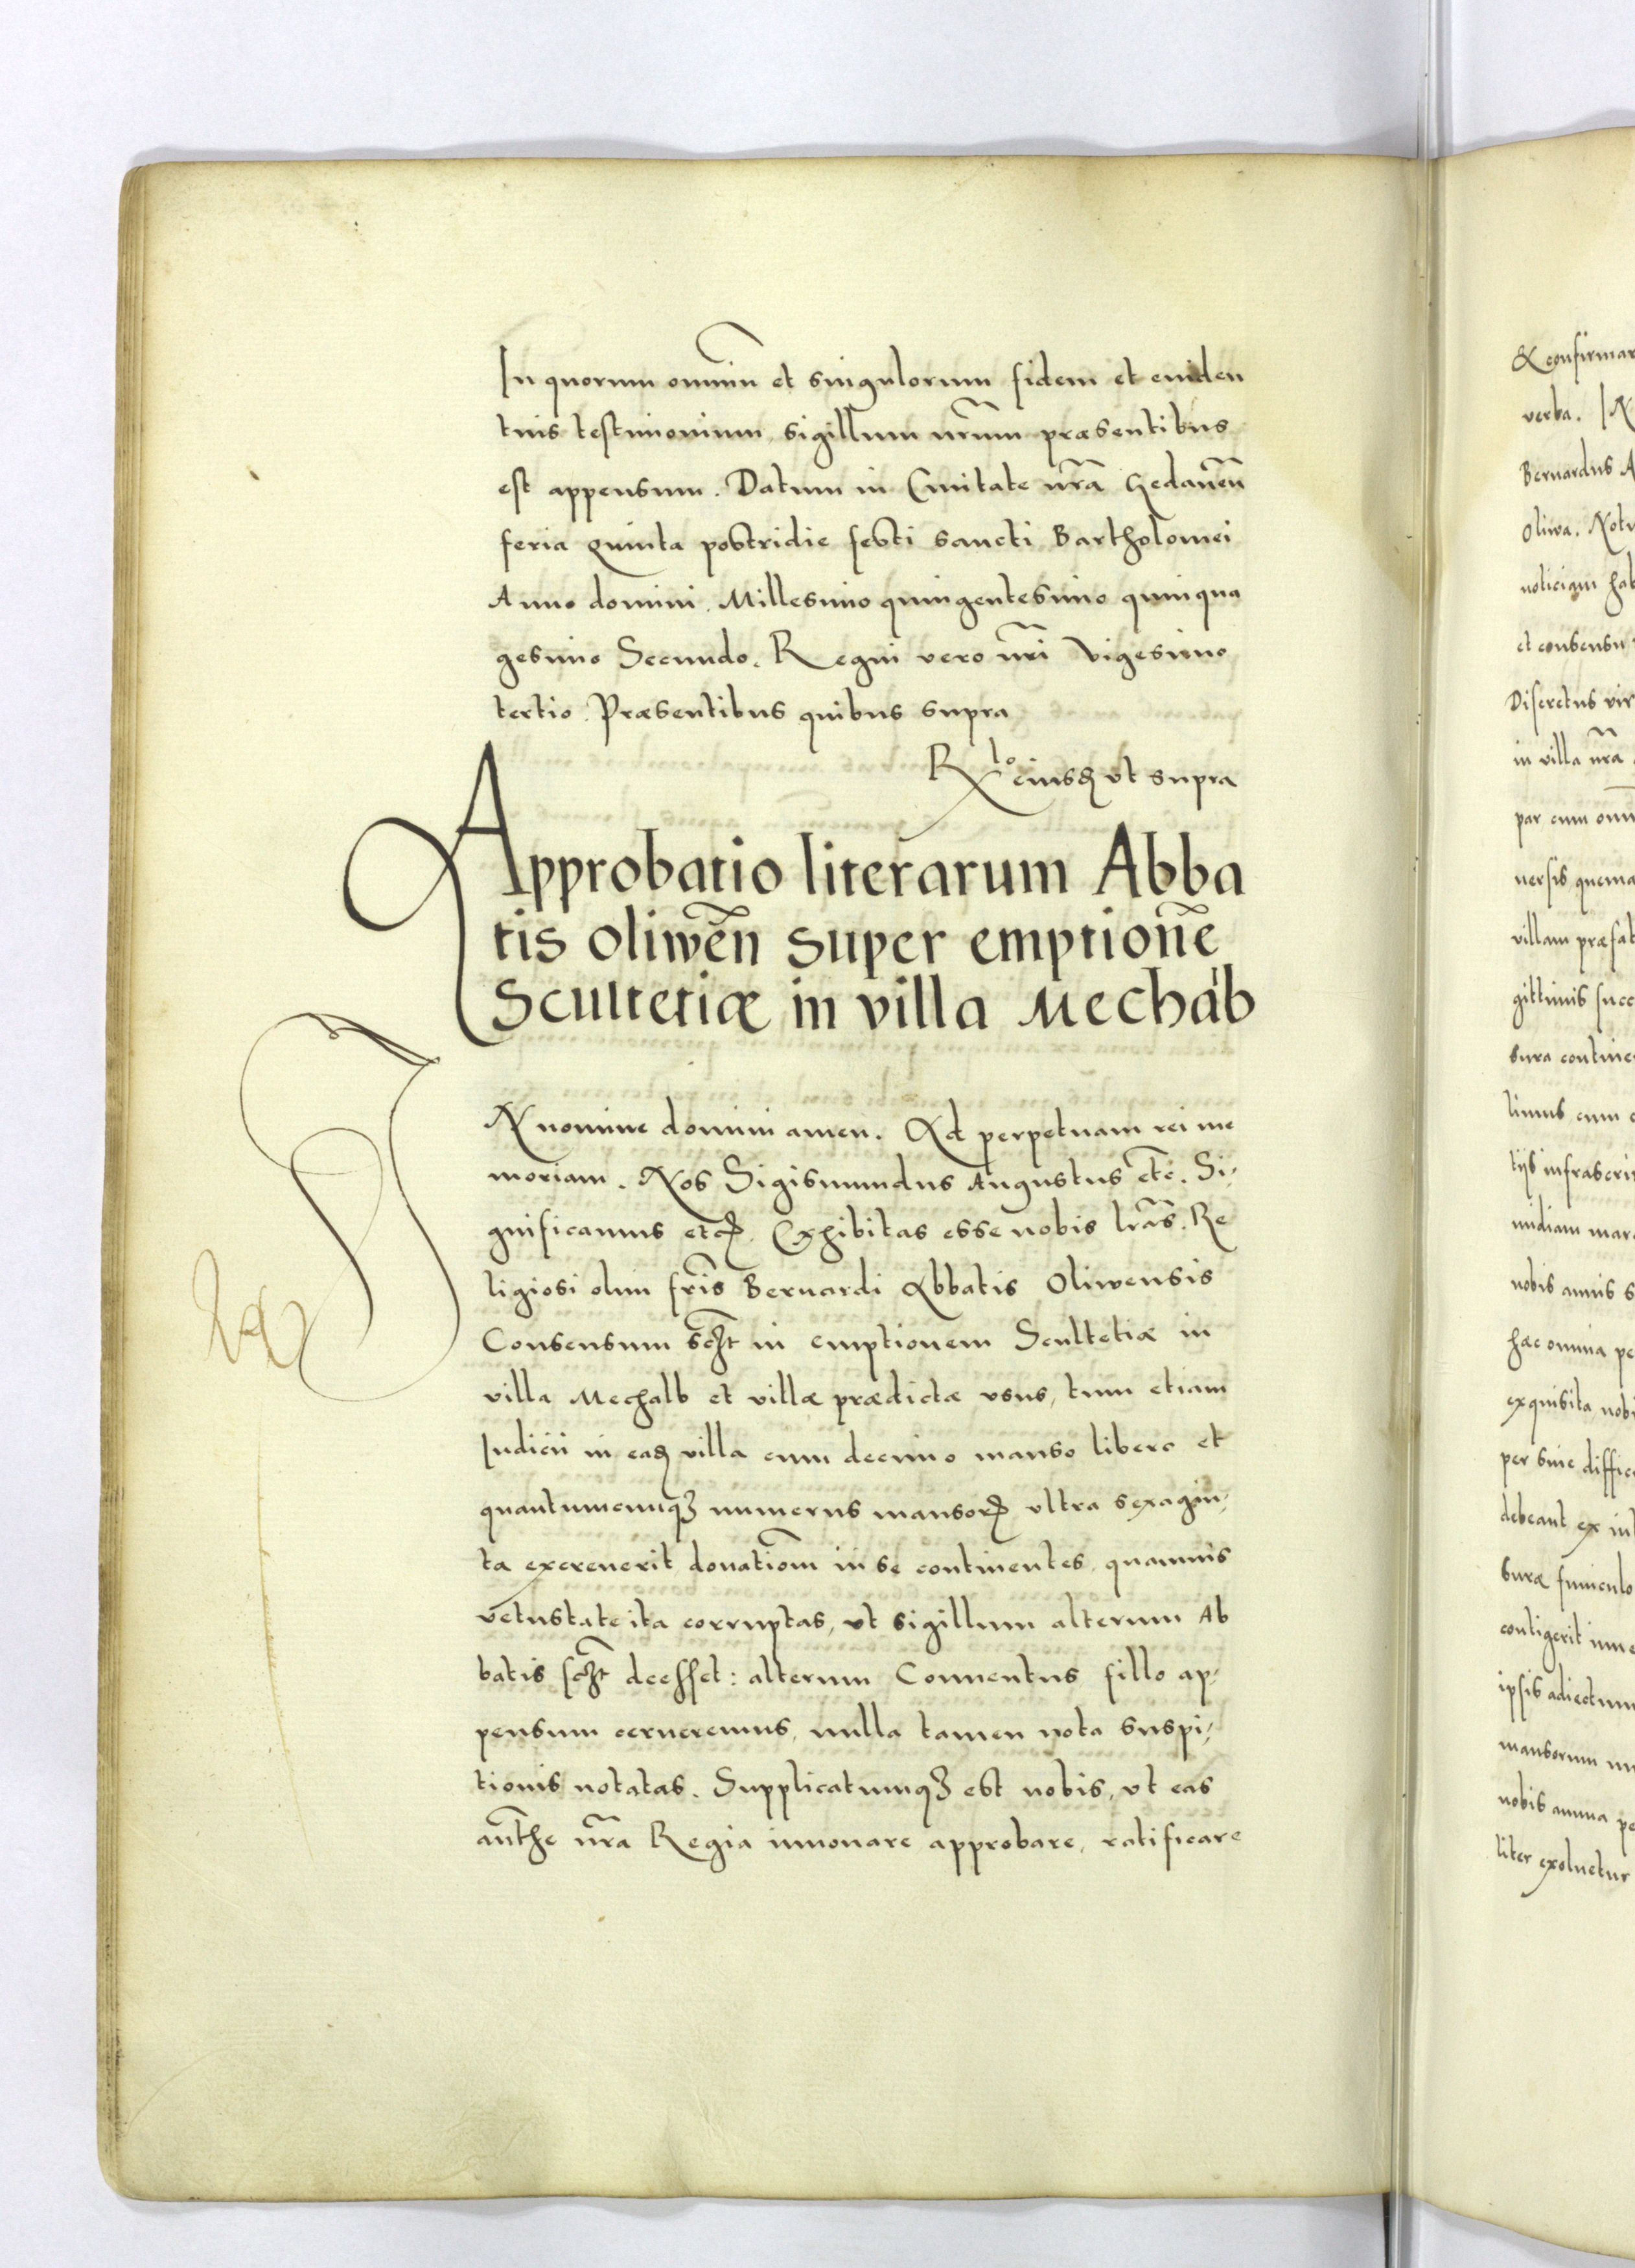 In quorum omniũ et singulorum fidem et euiden
tius testimonium, sigillum nrũm præsentibus
est appensum. Datum in Ciuitate nrã Gedaneñ
feria quinta postridie festi sancti Bartholomei
Anno domini. Millesimo quingentesimo quinqua
gesimo Secundo. Regni vero nrĩ vigesimo
tertio. Præsentibus quibus supra
Rlo eiusđ vt supra
Approbatio literarum Abba
tis Oliwẽn super emptionẽ
Scultetiæ in villa Mechalb
IN nomine domini amen. Ad perpetuam rei me
moriam. Nos Sigismundus Augustus etc̃. Si-
gnificamus etc. Exhibitas esse nobis lrãs. Re
ligiosi olim frĩs Bernardi Abbatis Oliwensis
Consensum sczt̃ in emptionem Scultetiæ in
villa Mechalb et villæ prædictæ vsus, tum etiam
Iudicii in eađ villa cum decimo manso libero et
quantumcunqꝫ numerus mansoꝝ vltra sexagin-
ta excreuerit donatiom̃ in se continentes, quamuis
vetustate ita corruptas, vt sigillum alterum Ab
batis sczt̃ deesset: alterum Conuentus fillo ap-
pensum cerneremus, nulla tamen nota suspi-
tionis notatas. Supplicatumqꝫ est nobis, vt eas
aut̃he nrã Regia innouare approbare, ratificare
& confirmar
verba. IN
Bernardus A
Oliwa. Notu
noticiam hab
et consensu
Discretus vir
in villa nrã
par cum omn
uersis quema
villam præfat
gittimis succ
sura contine
limus cum
tijs infrascri
midiam mar
nobis annis s
hæc omnia pe
exquisita nobi
per sine diffic
debeant ex int
suræ funiculo
contigerit inue
ipsis adiectum
mansorum nu
nobis annua pe
liter exoluetur